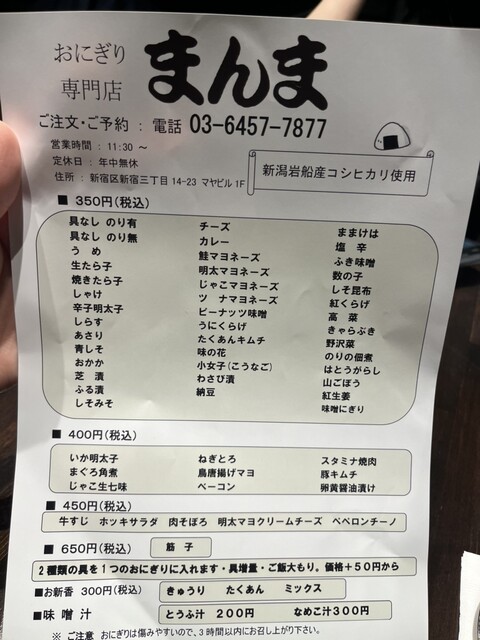 おにぎり
専門店
まんま
ご注文・ご予約 : 電話 03-6457-7877
営業時間 : 11:30 ～
定休日 : 年中無休
住所 : 新宿区新宿三丁目 14-23 マヤビル 1F
新潟岩船産コシヒカリ使用
■ 350円(税込)
具なし のり有
具なし のり無
う め
生たら子
焼きたら子
しゃけ
辛子明太子
しらす
あさり
青しそ
おかか
芝 漬
ふる漬
しそみそ
チーズ
カレー
鮭マヨネーズ
明太マヨネーズ
じゃこマヨネーズ
ツ ナマヨネーズ
ピーナッツ味噌
うにくらげ
たくあんキムチ
味の花
小女子(こうなご)
わさび漬
納豆
ままけは
塩 辛
ふき味噌
数の子
しそ昆布
紅くらげ
高 菜
きゃらぶき
野沢菜
のりの佃煮
はとうがらし
山ごぼう
紅生姜
味噌にぎり
■ 400円(税込)
いか明太子
まぐろ角煮
じゃこ生七味
ねぎとろ
鳥唐揚げマヨ
ベーコン
スタミナ焼肉
豚キムチ
卵黄醤油漬け
■ 450円(税込)
牛すじ ホッキサラダ 肉そぼろ 明太マヨクリームチーズ ペペロンチーノ
■ 650円(税込)
筋 子
2種類の具を1つのおにぎりに入れます・具増量・ご飯大もり。価格+50円から
■お新香 300円(税込)
きゅうり たくあん ミックス
■味 噌 汁
とうふ汁 200円 なめこ汁300円
※ ご注意 おにぎりは傷みやすいので、3時間以内にお召し上がり下さい。